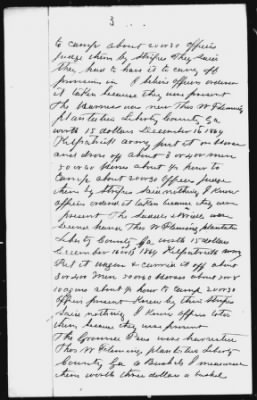 3
to camp about 20 or 30 officers
judge them by Stripes They said
They have to have it to carry off
provision in I believe officers ordered
it taken because they was present
The Harness was new Thos W Fleming
plantation Liberty County Ga
worth 15 dollars December 15 1864
Kilpatrick army put it on Horses
and drove off about 3 or 400 men
20 or 30 Horses about ½ hour to
Camp about 20 or 30 officers judge
them by Stripes Said nothing I know
officers ordered it taken because they were
present The Saddle & Bridle was
second hand Thos W Fleming plantation
Liberty County Ga worth 15 dollars
December 15 1864 Kilpatrick army
Put it wagon & carried it off about
3 or 400 men 20 or 30 Horses about 3 or 4
wagons about ½ hour to camp 20 or 30
officers present Know by their Stripes
Said nothing I know officers taken
them because they was present
The Ground Peas was harvested
Thos W Fleming plantation Liberty
County Ga Bushels I measured
them worth three dollars a bushel